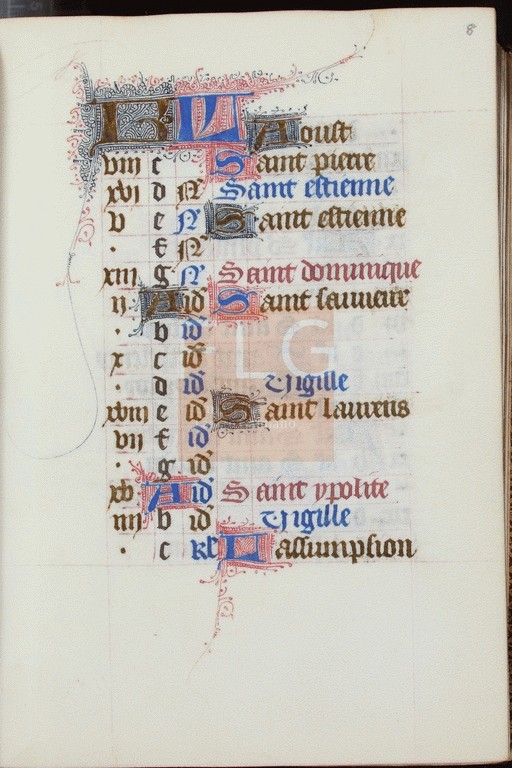 8
KL Aoust
viii c Saint pierre
xvi d N Saint estienne
v e N Saint estienne
. f N
xiii g N Saint dominique
ii A id Saint sauueire
. b id
x c id
. d id Vigille
xviii e id Saint laurens
vii f id
. g id
xv A id Saint ypolite
iiii b id Vigille
. c kl L assumption
LG